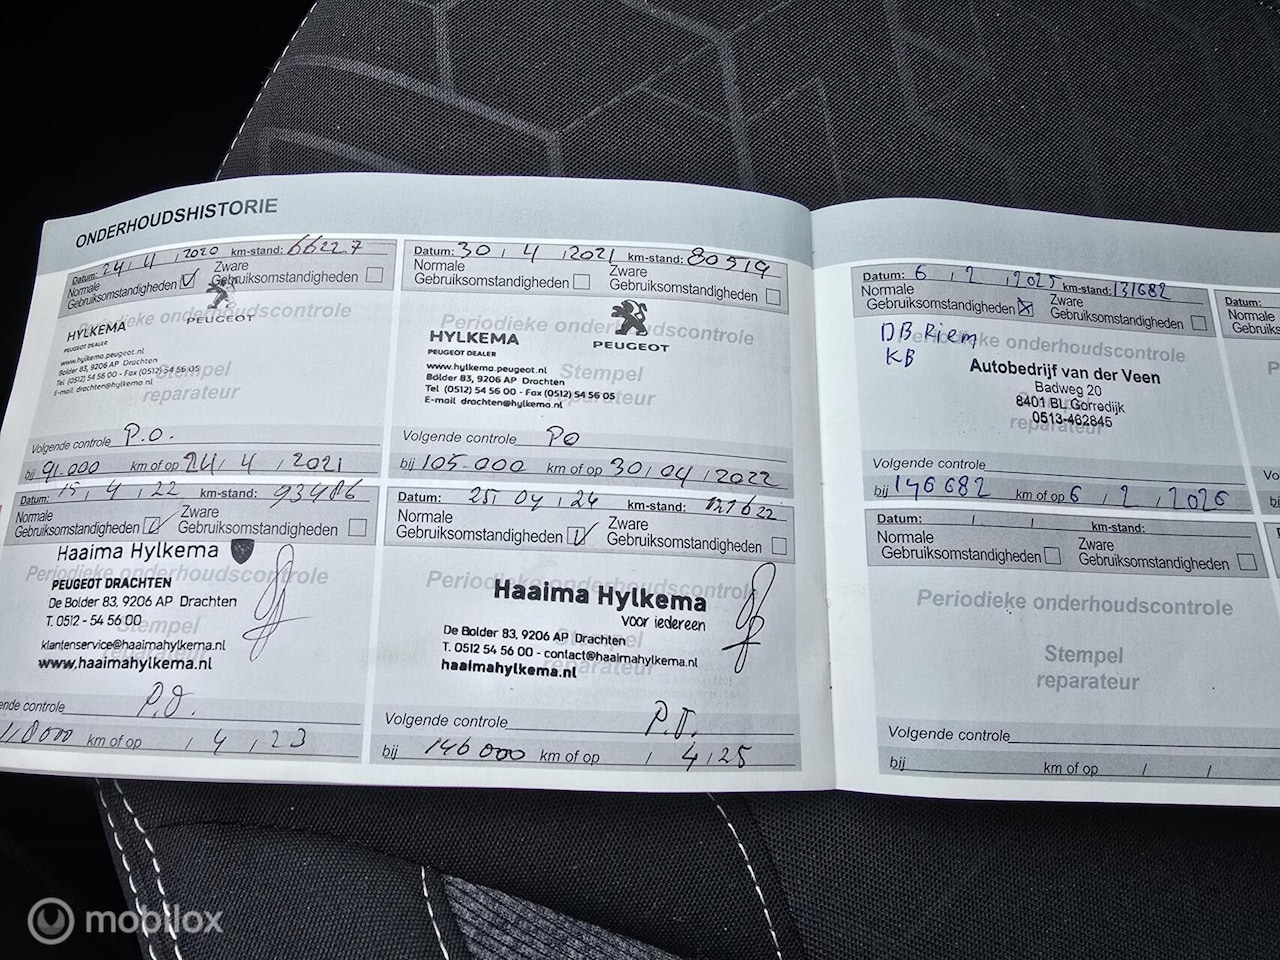 ONDERHOUDSHISTORIE
Datum: 24 / 4 / 2020 km-stand: 66227
Normale Gebruiksomstandigheden
Zware Gebruiksomstandigheden
Periodieke onderhoudscontrole
PEUGEOT
HYLKEMA
PEUGEOT DEALER
www.hylkema.peugeot.nl
Bolder 83, 9206 AP Drachten
Tel (0512) 54 56 00 - Fax (0512) 54 56 05
E-mail drachten@hylkema.nl
Stempel
reparateur
Volgende controle P.O.
bij 91.000 km of op 24 / 4 / 2021
Datum: 30 / 4 / 2021 km-stand: 80519
Normale Gebruiksomstandigheden
Zware Gebruiksomstandigheden
Periodieke onderhoudscontrole
PEUGEOT
HYLKEMA
PEUGEOT DEALER
www.hylkema.peugeot.nl
Bolder 83, 9206 AP Drachten
Tel (0512) 54 56 00 - Fax (0512) 54 56 05
E-mail drachten@hylkema.nl
Stempel
reparateur
Volgende controle PO
bij 105.000 km of op 30 / 04 / 2022
Datum: 15 / 4 / 22 km-stand: 93486
Normale Gebruiksomstandigheden
Zware Gebruiksomstandigheden
Haaima Hylkema
Periodieke onderhoudscontrole
PEUGEOT DRACHTEN
De Bolder 83, 9206 AP Drachten
T. 0512 - 54 56 00
Stempel
klantenservice@haaimahylkema.nl
reparateur
www.haaimahylkema.nl
ende controle P.O.
km of op / 4 / 23
Datum: 25 / 04 / 24 km-stand: 121622
Normale Gebruiksomstandigheden
Zware Gebruiksomstandigheden
Periodieke onderhoudscontrole
Haaima Hylkema
voor iedereen
De Bolder 83, 9206 AP Drachten
Stempel
T. 0512 54 56 00 - contact@haaimahylkema.nl
reparateur
haaimahylkema.nl
Volgende controle P.O.
bij 146000 km of op / 4 / 25
Datum: 6 / 2 / 2025 km-stand: 131682
Normale Gebruiksomstandigheden
Zware Gebruiksomstandigheden
DB Riem
KB
Periodieke onderhoudscontrole
Autobedrijf van der Veen
Badweg 20
Stempel
8401 BL Gorredijk
0513-462845
reparateur
Volgende controle
bij 146682 km of op 6 / 2 / 2026
Datum: / / km-stand:
Normale Gebruiksomstandigheden
Zware Gebruiksomstandigheden
Periodieke onderhoudscontrole
Stempel
reparateur
Volgende controle
bij km of op / /
Datum:
Normale
Normale
mobilox